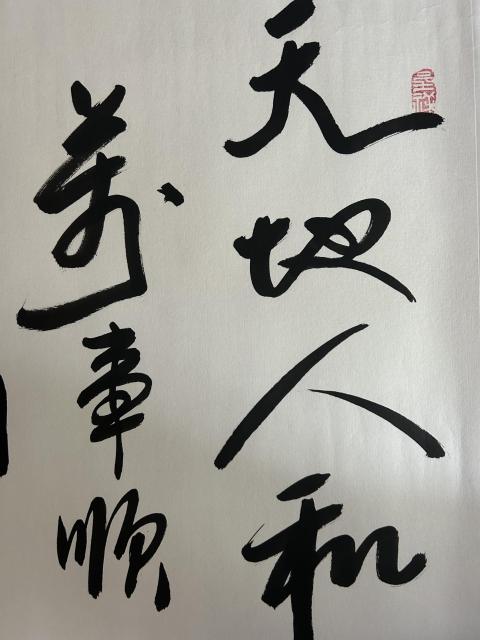 天地人和
萬事順